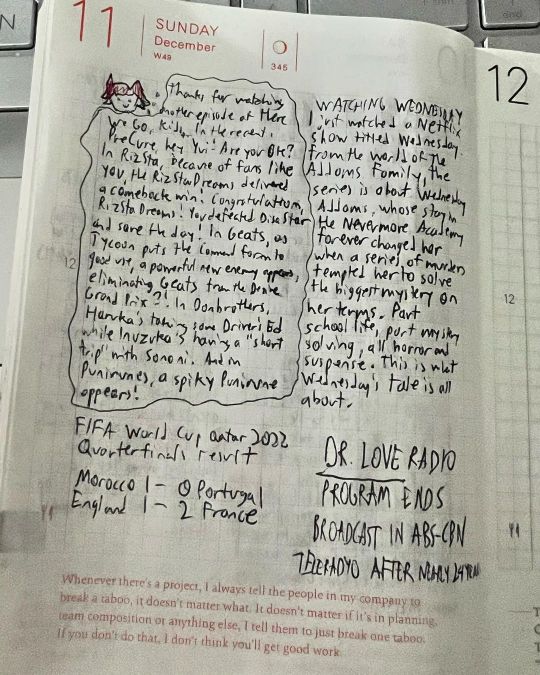 11
SUNDAY
December
W49
345
12
Thanks for watching
another episode of Here
We Go, Kids. In the recent.
PreCure, hey Yui! Are you OK?
In RizSta, because of fans like
you, the RizStarDreams delivered
a comeback win! Congratulations,
RizSta Dreams! You defeated
and save the day! In Geats, as
Tycoon puts the Command form to
good use, a powerful new enemy appears,
eliminating Geats from the Desire
Grand Prix?! In Donbrothers,
Haruka's taking some Driver's Ed
while Inuzuka's having a "short
trip" with Sononi. And in
Punirunes, a spiky Punirune
appears!
WATCHING WEDNESDAY
I just watched a Netflix
show titled Wednesday
from the world of The
Addams Family, the
series is about Wednesday
Addams, whose stay in
the Nevermore Academy
forever changed her
when a series of murders
tempted her to solve
the biggest mystery on
her terms. Part
school life, part mystery
solving, all horror and
suspense. This is what
Wednesday's tale is all
about.
12
12
FIFA World Cup Qatar 2022
Quarterfinals result
Morocco 1 - 0 Portugal
England 1 - 2 France
DR. LOVE RADIO
PROGRAM ENDS
BROADCAST IN ABS-CBN
TELERADYO AFTER NEARLY 24 YEARS
Whenever there's a project, I always tell the people in my company to
break a taboo, it doesn't matter what. It doesn't matter if it's in planning,
team composition or anything else, I tell them to just break one taboo.
If you don't do that, I don't think you'll get good work.